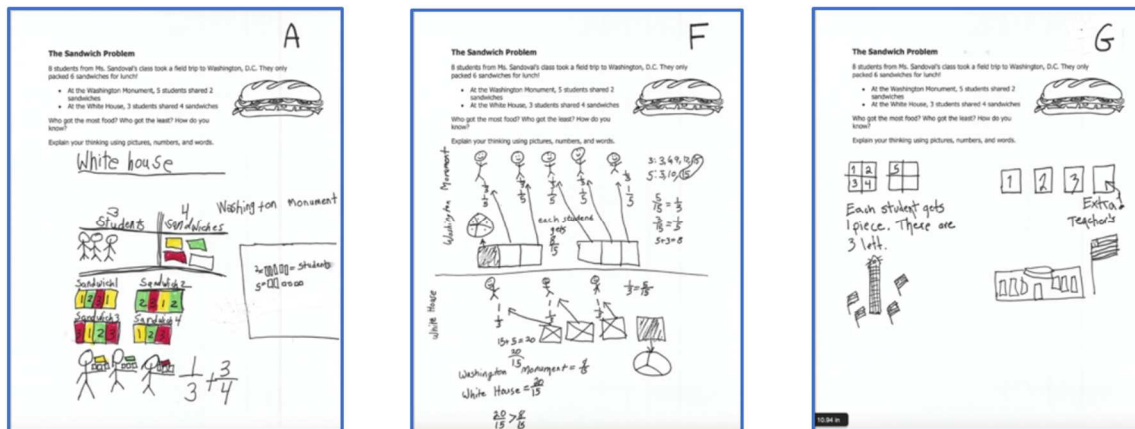 A
The Sandwich Problem
8 students from Ms. Sandoval's class took a field trip to Washington, D.C. They only
packed 6 sandwiches for lunch!
• At the Washington Monument, 5 students shared 2
sandwiches
• At the White House, 3 students shared 4 sandwiches
Who got the most food? Who got the least? How do you
know?
Explain your thinking using pictures, numbers, and words.
White house
3
Students
4
Sandwiches
Washington Monument
= Students
Sandwich1
Sandwich2
1 2 3 1
2 3 1 2
Sandwich3
Sandwich4
3 1 2 3
1 2 3
1/3 + 3/4
F
The Sandwich Problem
8 students from Ms. Sandoval's class took a field trip to Washington, D.C. They only
packed 6 sandwiches for lunch!
• At the Washington Monument, 5 students shared 2
sandwiches
• At the White House, 3 students shared 4 sandwiches
Who got the most food? Who got the least? How do you
know?
Explain your thinking using pictures, numbers, and words.
Washington Monument
5: 5, 10, 15
5/15 = 1/3
5+3=8
each student
gets
White House
1/3 = 5/15
15+5=20
20/15
Washington Monument =
White House = 20/15
G
The Sandwich Problem
8 students from Ms. Sandoval's class took a field trip to Washington, D.C. They only
packed 6 sandwiches for lunch!
• At the Washington Monument, 5 students shared 2
sandwiches
• At the White House, 3 students shared 4 sandwiches
Who got the most food? Who got the least? How do you
know?
Explain your thinking using pictures, numbers, and words.
1 2 5
3 4
1 2 3
Extra
Teachers
Each student gets
1 piece. There are
3 left.
10.94 in